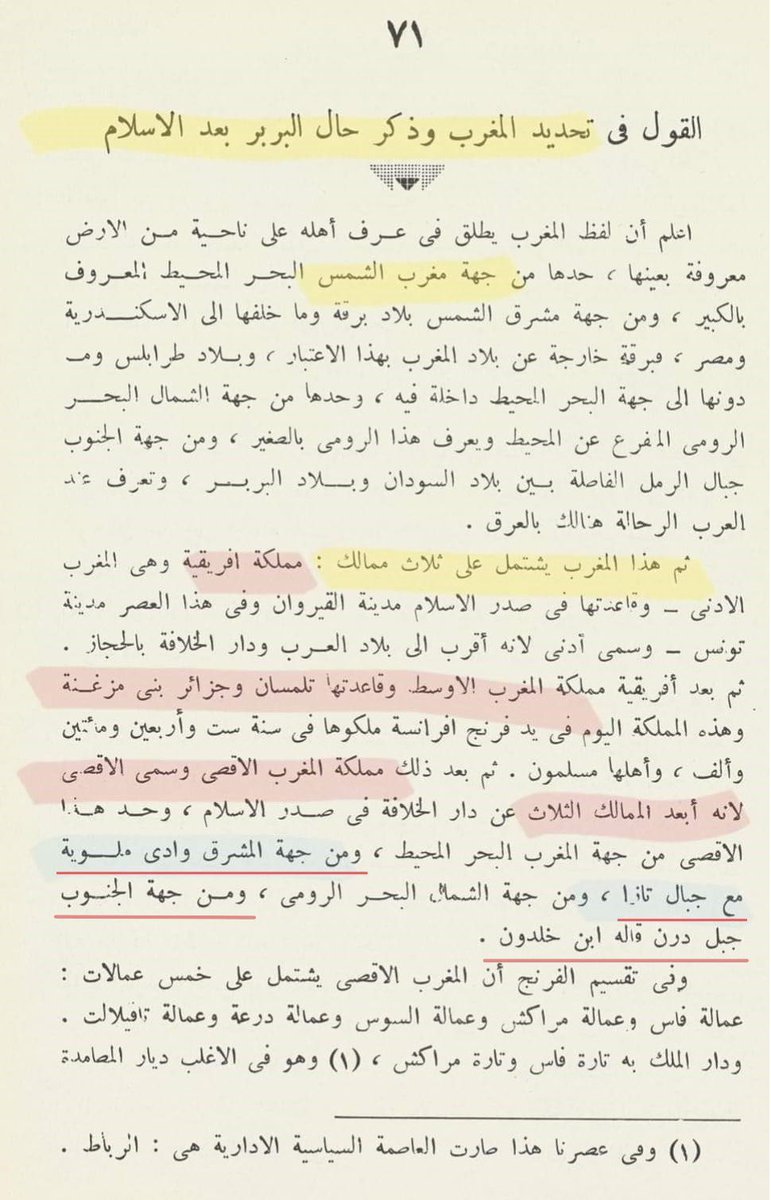 ٧١
القول فى تحديد المغرب وذكر حال البربر بعد الاسلام
اعلم أن لفظ المغرب يطلق فى عـرف أهله على ناحية مـن الارض
معروفة بعينها ، حدها من جهة مغرب الشمس البحر المحيط المعـروف
بالكبير ، ومن جهة مشرق الشمس بلاد برقة وما خلفها الى الاسكندرية
ومصر ، فبرقة خارجة عن بلاد المغرب بهذا الاعتبار ، وبـلاد طرابلس ومـ
دونها الى جهة البحر المحيط داخلة فيه ، وحدها من جهة الشمال البحـر
الرومى المفرع عن المحيط ويعرف هذا الرومى بالصغير ، ومن جهة الجنوب
جبال الرمل الفاصلة بـين بلاد السودان وبـلاد البربـر ، وتعرف عند
العرب الرحالة هنالك بالعرق .
ثم هذا المغرب يشتمل على ثلاث ممالك : مملكة افريقية وهى المغرب
الادنى ــ وقاعدتها فى صدر الاسلام مدينة القيروان وفى هذا العصر مدينة
تونس ــ وسمى أدنى لانه أقرب الى بلاد العـرب ودار الخلافة بالحجاز .
ثم بعد أفريقية مملكة المغرب الاوسط وقاعدتها تلمسان وجزائر بنى مزغـنة
وهذه المملكة اليوم فى يد فرنج افرانسة ملكوها فى سنة ست وأربعين ومائتين
وألف ، وأهلها مسلمون . ثم بعد ذلك مملكة المغرب الاقصى وسمى الاقصى
لانه أبعد الممالك الثلاث عن دار الخلافة فى صـدر الاسلام ، وحـد هـذا
الاقصى من جهة المغرب البحر المحيط ، ومن جهة المشرق وادى ملـوية
مع جبال تازا ، ومن جهة الشمال البحـر الرومى ، ومـن جهة الجنـوب
جبل درن قاله ابن خلدون .
وفى تقسيم الفرنج أن المغرب الاقصى يشتمل على خمس عمالات :
عمالة فاس وعمالة مراكش وعمالة السوس وعمالة درعة وعمالة تافيلالت .
ودار الملك به تارة فاس وتارة مراكش ، (١) وهو فى الاغلب ديار المصامدة
(١) وفى عصرنا هذا صارت العاصمة السياسية الادارية هى : الرباط .